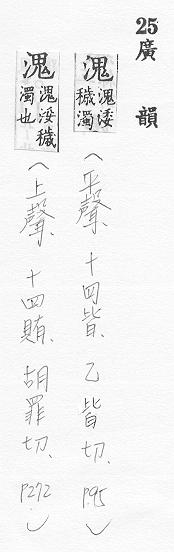 25廣韻
溾 溾涹穢濁(平聲、十四皆、乙皆切、P.95)
溾 溾涹穢濁也(上聲、十四賄、胡罪切、P272.)